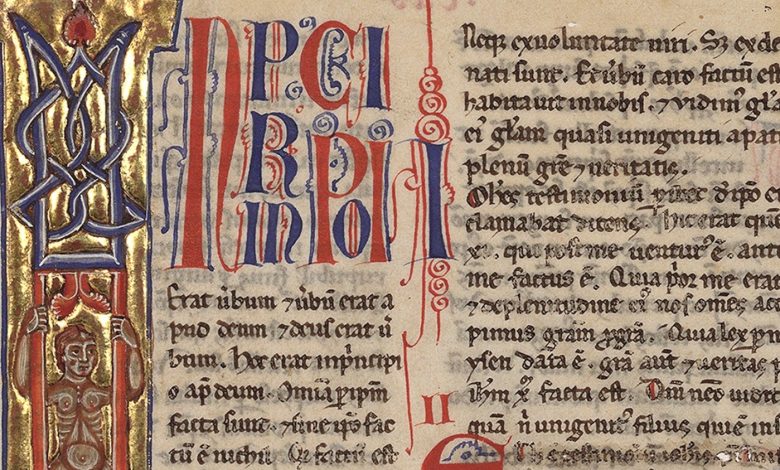 N P CI
R PI
IN O I
Erat ūbum ⁊ ūbū erat a
pud deum ⁊ deus erat ū
bum. Hoc erat inpͥncipi
o ap̄ deum. Om̄ia ꝑ ip̄m
facta sunt. ⁊ sine ip̄o fac
tū ē nichil. Qͩ factū est
II
Neqꝫ ex uoluntate uiri. Sꝫ ex de
nati sunt. Et ūbū caro factum est
habitauit innobis. ⁊ vidimꝰ gl
eiꝰ gl̄am quasi unigeniti a pat
plenū gr̄e ⁊ ueritatis.
Ohes testimoniū de ip̄o
clamabat dicens. Hic erat qu
xi. qui post me uenturꝰ ē. ant
me factus ē. Quia pͥor me erat
⁊ de plenitudine eiꝰ nos om̄es ac
pimus gr̄am ꝓ gr̄a. Quia lex p
ysen data ē. gr̄a aut̄ ⁊ ueritas p
ih̄m facta est. Dm̄ nemo
quā n̄ unigenitꝰ filius qui ē in